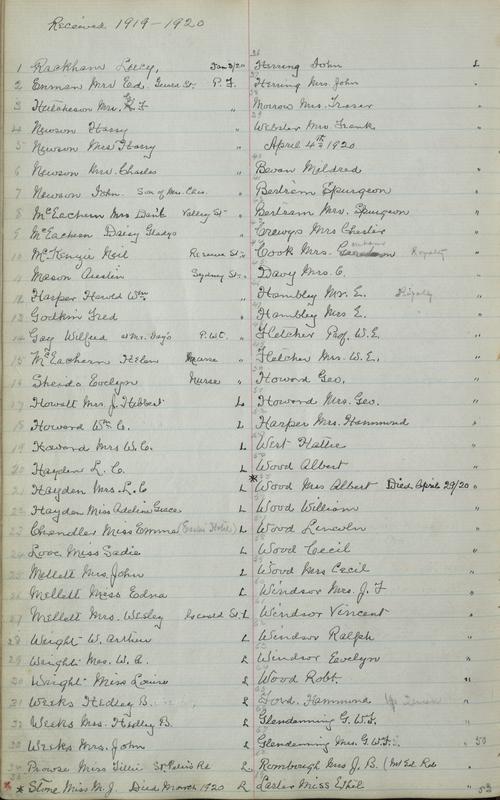 Received 1919-1920
1 Rackham Lucy, Jan 3/20
2 Enman Mrs Ed. St. P. F.
3 Hutcheson Mr. F "
4 Newson Harry "
5 Newson Mrs Harry "
6 Newson Mrs. Charles "
7 Newson John. Son of Mrs. Chas. "
8 McEachern Mrs Dank Valley St "
9 McEachern Daisy Gladys "
10 McKenzie Neil Reserve St. "
11 Mason Austin Sydney St. "
12 Harper Harold Wm "
13 Godkin Fred "
14 Gay Wilfred at Mr. Gay's P.W.C. "
15 McEachern Helen Nurse "
16 Sheids Evelyn Nurse "
17 Howatt Mrs. J. Hibbert L
18 Howard Wm C. L
19 Howard Mrs W. C. L
20 Hayden L. C. L
21 Hayden Mrs. L. C L
22 Hayden Miss Adelia Grace L
23 Chandler Miss Emma L
24 Love Miss Sadie L
25 Mellett Mrs. John L
26 Mellett Miss Edna L
27 Mellett Mrs. Wesley St. L
28 Wright W. Arthur L
29 Wright Mrs. W. A. L
30 Wright Miss Louise L
31 Weeks Hedley B. L
32 Weeks Mrs. Hedley B. L
33 Weeks Mrs. John L
34 Prowse Miss Tillie St. Peters Rd L
35 * Stone Miss M. J. Died March 1920 L
36 Herring John L
37 Herring Mrs. John "
38 Morrow Mrs. Fraser "
39 Webster Mrs Frank "
April 4th 1920
Bevan Mildred "
Bertram Spurgeon "
Bertram Mrs. Spurgeon "
Crewys Mrs Chester "
Cook Mrs. Royalty "
Davy Mrs. C. "
Hambley Mr. E. Royalty "
Hambley Mrs E. "
Fletcher Prof. W. E. "
Fletcher Mrs. W. E., "
Howard Geo. "
Howard Mrs. Geo. "
Harper Mrs. Hammond "
West Hattie "
Wood Albert "
* Wood Mrs Albert Died April 29/20 "
Wood William "
Wood Lincoln "
Wood Cecil "
Wood Mrs Cecil "
Windsor Mrs. J. F "
Windsor Vincent "
Windsor Ralph "
Windsor Evelyn "
Wood Robt. "
Ford. Hammond "
Glendenning G. W. F. "
Glendenning Mrs. G. W. F. " 50
Rombough Mrs J. B. (Mt Ed. Rd. "
Lester Miss Ethel " 52